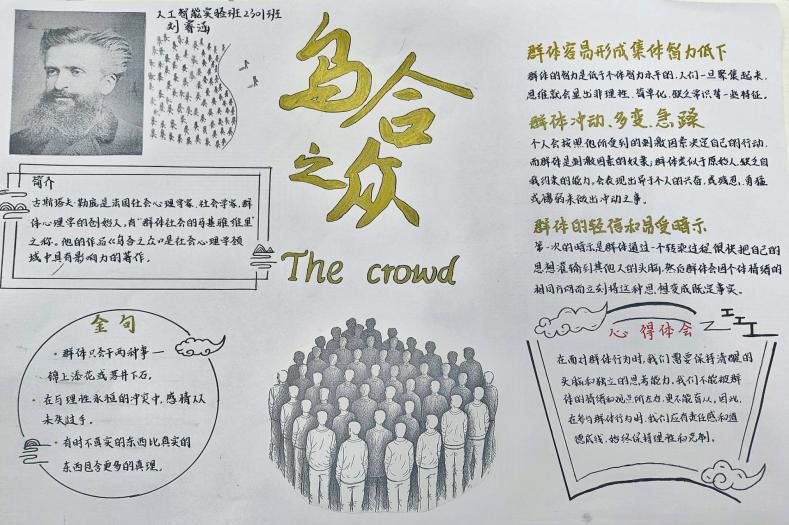 人工智能实验班2301班
刘睿涵
乌合
之众
The crowd
简介
古斯塔夫·勒庞是法国社会心理学家、社会学家,群
体心理学的创始人,有"群体社会的马基雅维里"
之称。他的作品《乌合之众》是社会心理学领
域中具有影响力的著作。
金句
· 群体只会干两种事—
锦上添花或落井下石。
· 在与理性永恒的冲突中,感情从
未失过手。
· 有时不真实的东西比真实的
东西包含更多的真理。
群体容易形成集体智力低下
群体的智力是低于个体智力水平的,人们一旦聚集起来,
思维就会显出非理性、简单化、缺乏常识等一些特征。
群体冲动、多变、急躁
个人会按照他所受到的刺激因素决定自己的行动,
而群体是刺激因素的奴隶;群体类似于原始人,缺乏自
我约束的能力,会表现出异于个人的兴奋,或残忍、勇猛
或懦弱来做出冲动之事。
群体的轻信和易受暗示
第一次的暗示是群体通过一个转染过程,很快把自己的
思想灌输到其他人的头脑,然后群体会因个体情绪的
相同方向而立刻将这种思想变成既定事实。
心得体会
在面对群体行为时,我们需要保持清醒的
头脑和独立的思考能力,我们不能被群
体的情绪和观点所左右,更不能盲从,因此,
在参与群体行为时,我们应有责任感和道
德底线,始终保持理性和克制。